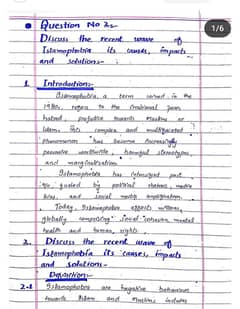 1/6
Question No 2:-
Discuss the recent wave of
Islamophobia its causes, impacts
and solutions:-
1. Introduction:-
Islamophobia, a term coined in the
1980s, refers to the irrational fear,
hatred, prejudice towards Muslims or
Islam. This complex and multifaceted
phenomenon has become increasingly
pervasive worldwide, harmful stereotypes,
and marginalization
Islamophobia has intensified post
9/11, fueled by political rhetoric, media
bias, and social media amplification.
Today, Islamophobia affects millions
globally compelling social cohesion, mental
health and human rights.
2. Discuss the recent wave of
Islamophobia its causes, impacts
and solutions:-
Definition:-
2.1 Islamophobia are negative behaviours
towards Islam and Muslims includes